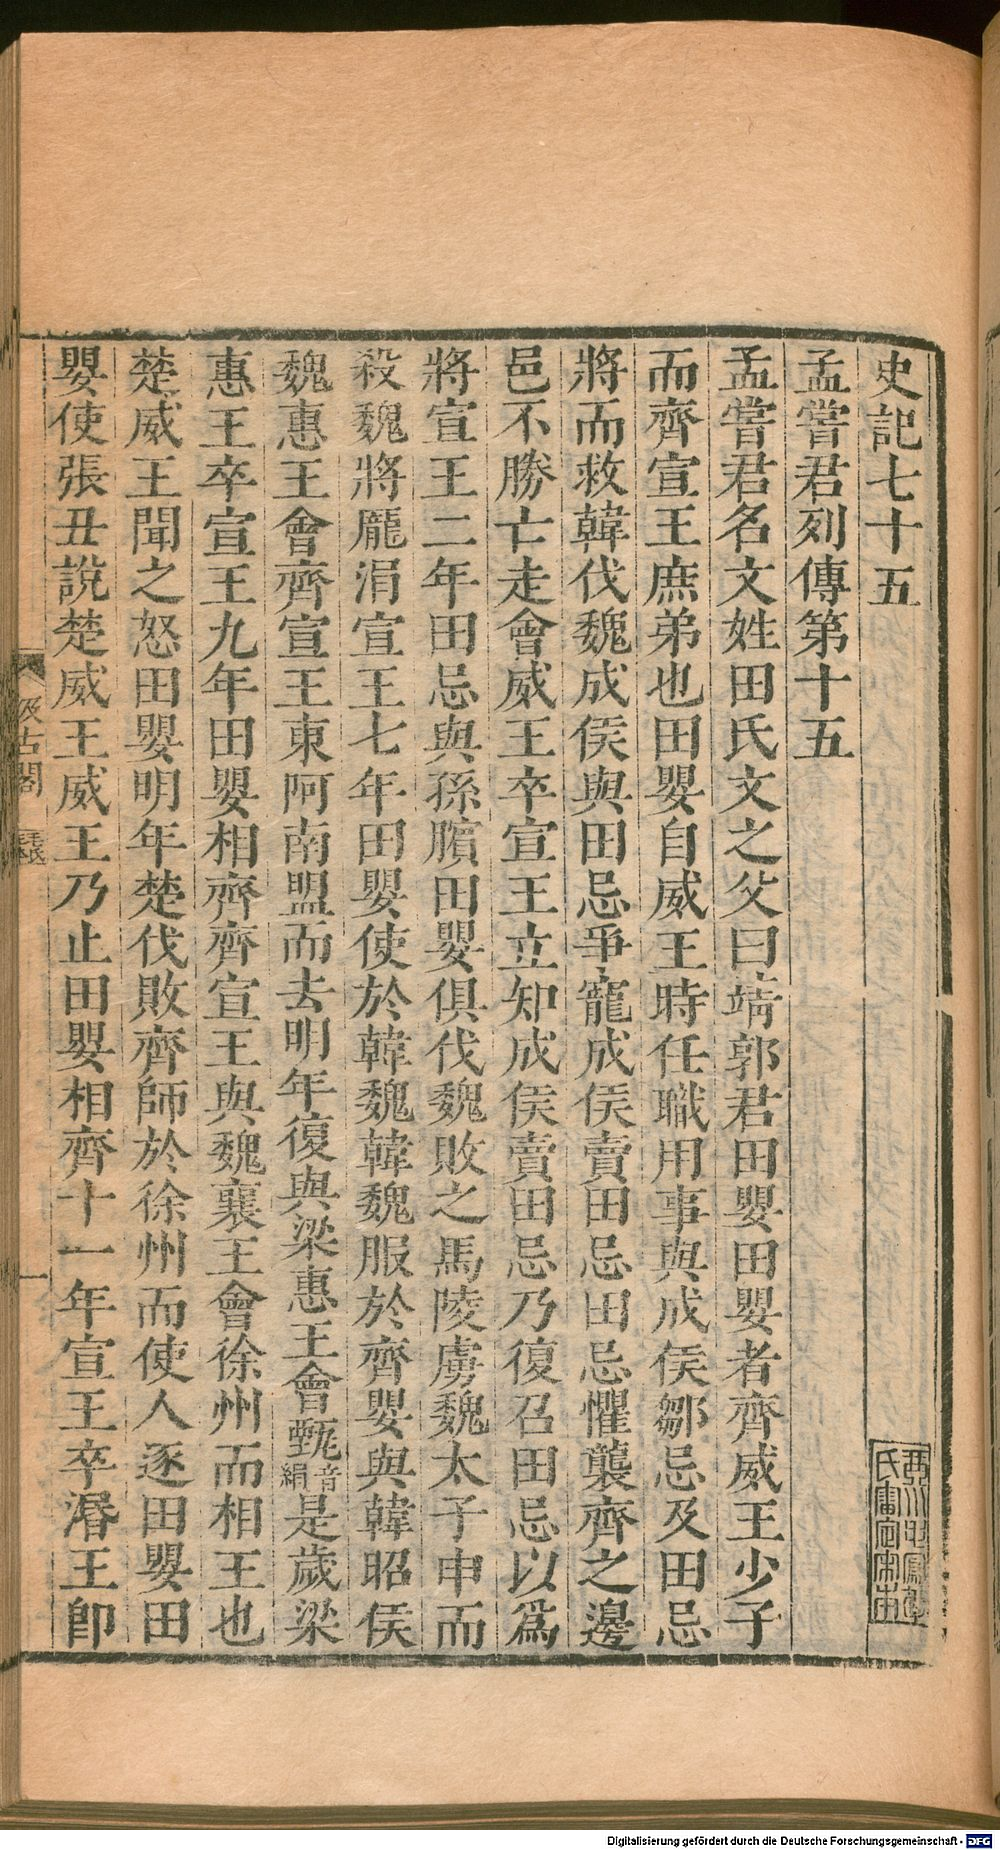 史記七十五
孟嘗君列傳第十五
孟嘗君名文姓田氏文之父曰靖郭君田嬰田嬰者齊威王少子
而齊宣王庶弟也田嬰自威王時任職用事與成侯鄒忌及田忌
將而救韓伐魏成侯與田忌爭寵成侯賣田忌田忌懼襲齊之邊
邑不勝亡走會威王卒宣王立知成侯賣田忌乃復召田忌以爲
將宣王二年田忌與孫臏田嬰俱伐魏敗之馬陵虜魏太子申而
殺魏將龐涓宣王七年田嬰使於韓魏韓魏服於齊嬰與韓昭侯
魏惠王會齊宣王東阿南盟而去明年復與梁惠王會甄音絹是歲梁
惠王卒宣王九年田嬰相齊齊宣王與魏襄王會徐州而相王也
楚威王聞之怒田嬰明年楚伐敗齊師於徐州而使人逐田嬰田
嬰使張丑說楚威王威王乃止田嬰相齊十一年宣王卒湣王卽
汲古閣
毛氏
一
Digitalisierung gefördert durch die Deutsche Forschungsgemeinschaft - DFG